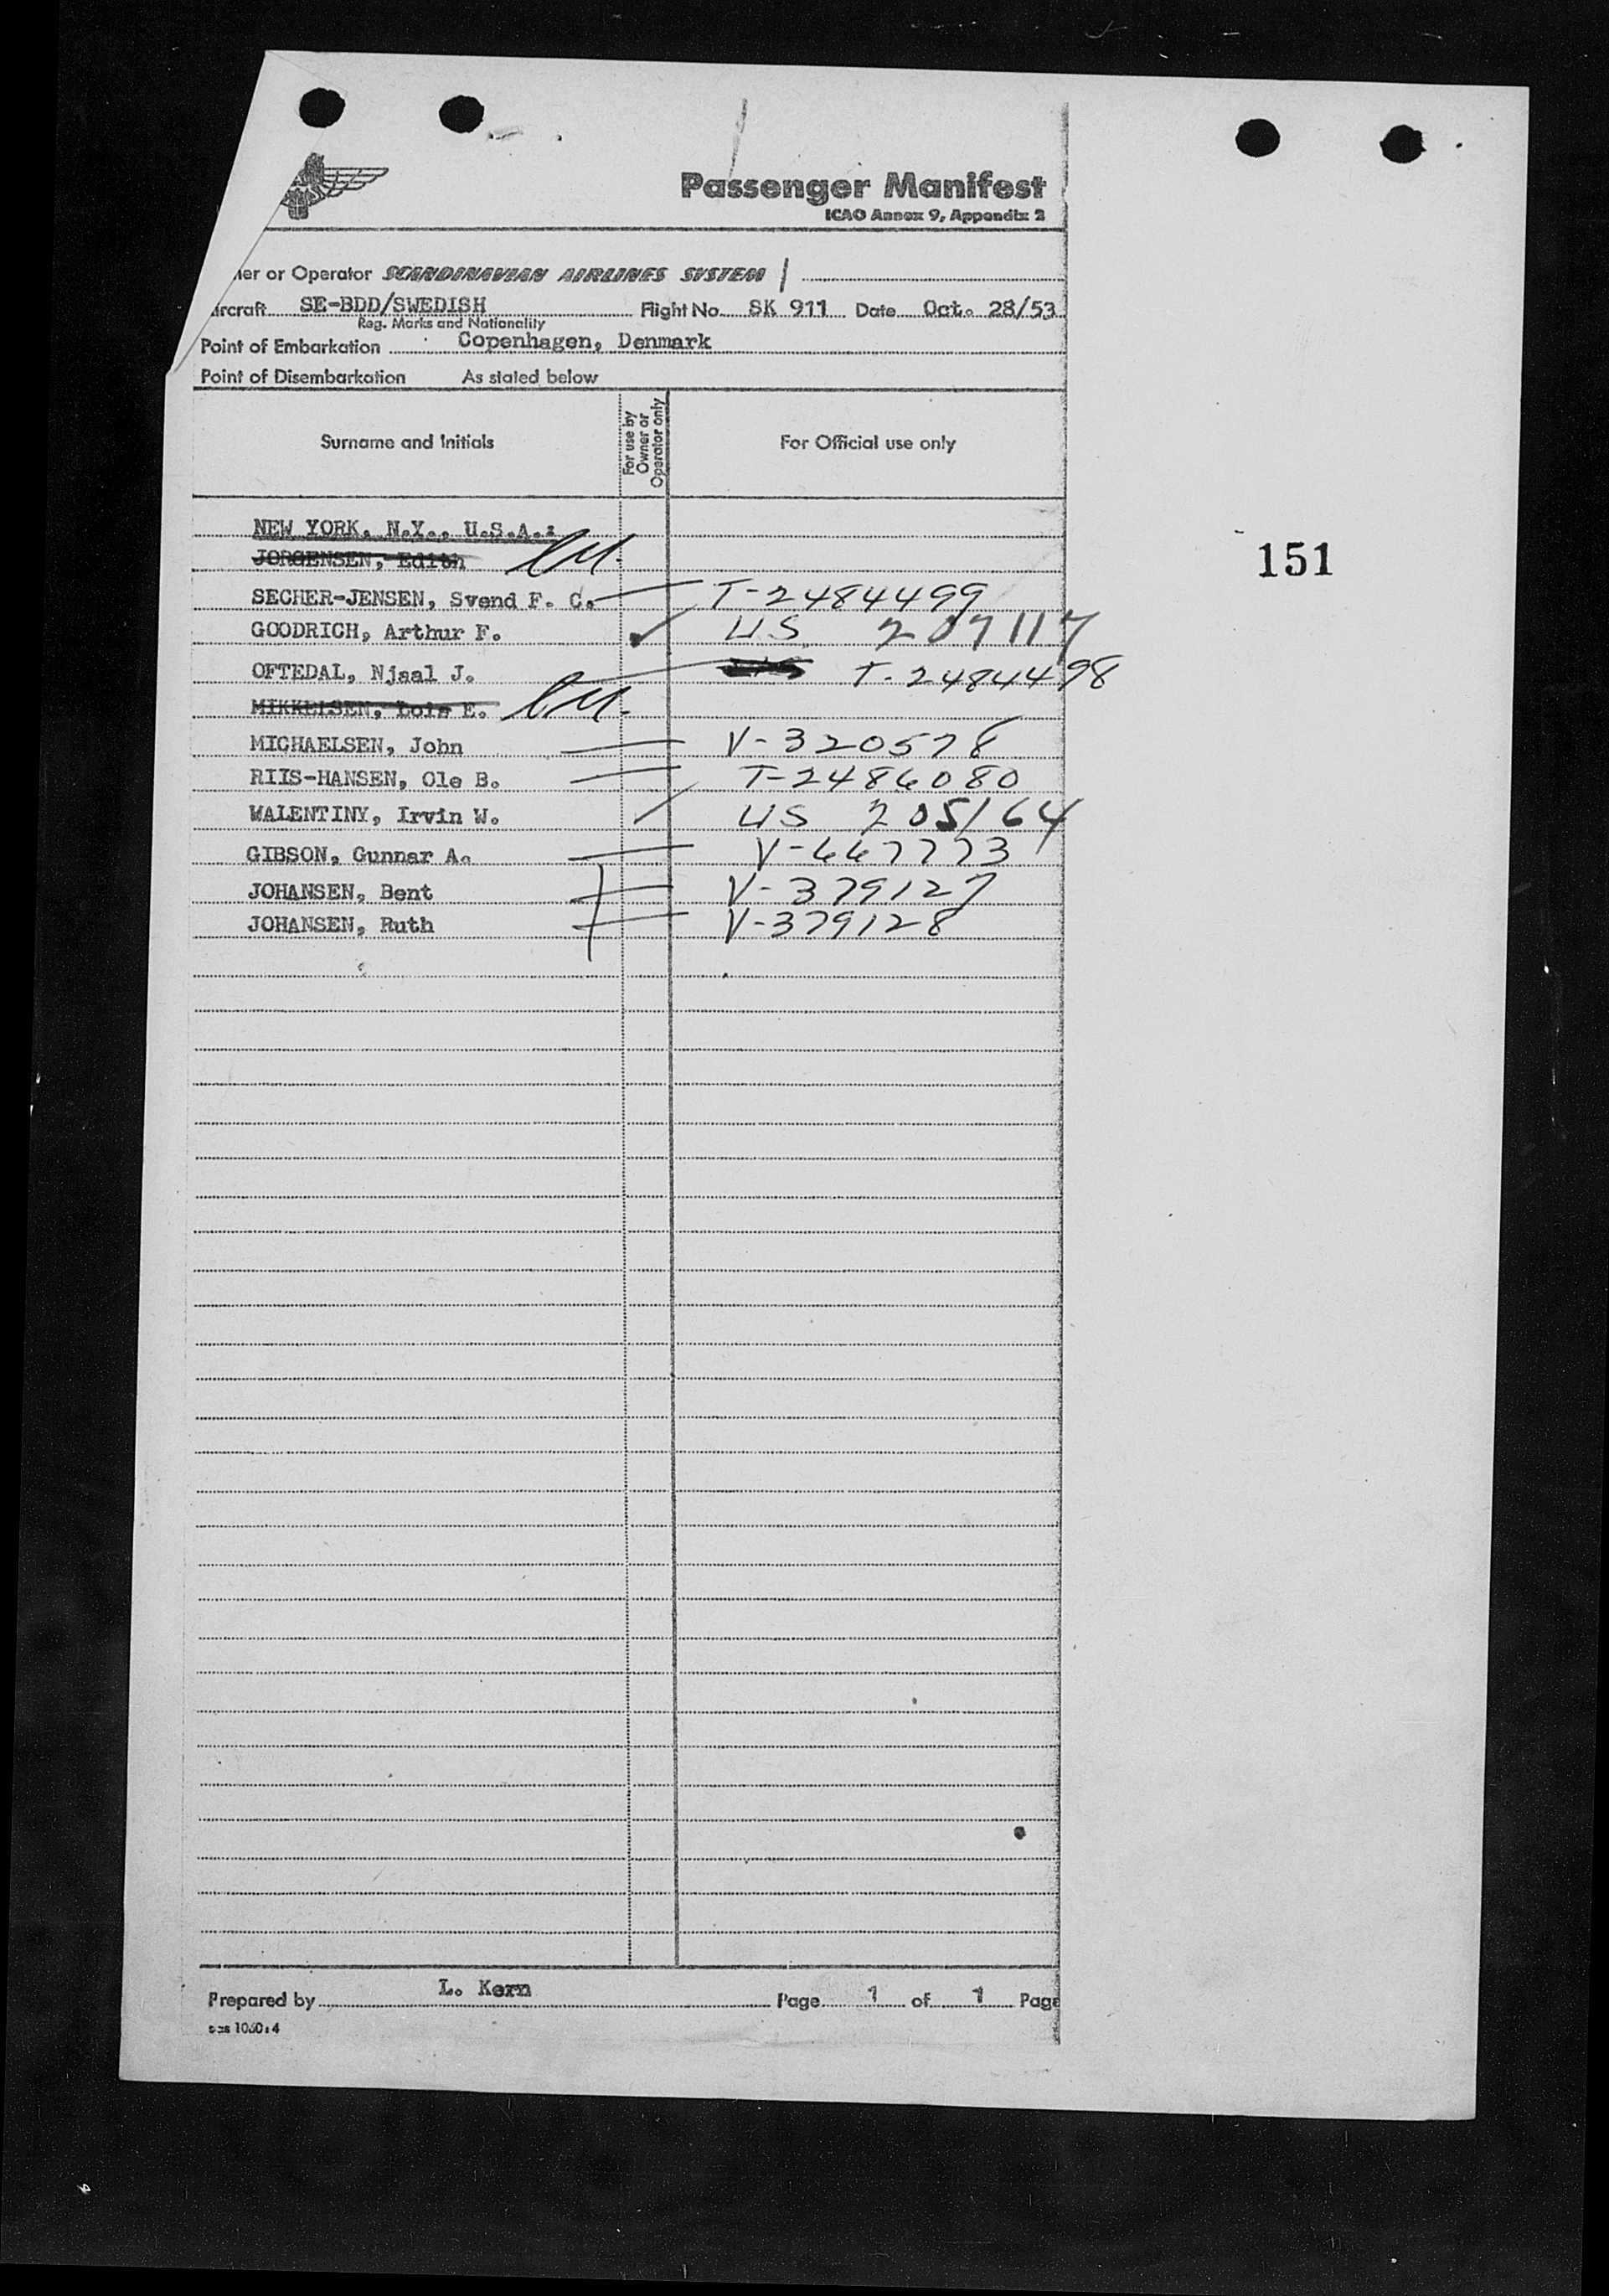 Passenger Manifest
ICAO Annex 9, Appendix 2
ner or Operator SCANDINAVIAN AIRLINES SYSTEM
ircraft SE-BDD/SWEDISH Flight No. SK 911 Date Oct. 28/53
Reg. Marks and Nationality
Point of Embarkation Copenhagen, Denmark
Point of Disembarkation As stated below
Surname and Initials For use by Owner or Operator only For Official use only
NEW YORK, N.Y., U.S.A.:
151
JORGENSEN, Edith
SECHER-JENSEN, Svend F. C. T-2484499
GOODRICH, Arthur F. US 207117
OFTEDAL, Njaal J. T-2484498
MIKKELSEN, Lois E.
MICHAELSEN, John V-320578
RIIS-HANSEN, Ole B. T-2486080
WALENTINY, Irvin W. US 205164
GIBSON, Gunnar A. V-667773
JOHANSEN, Bent V-379127
JOHANSEN, Ruth V-379128
Prepared by L. Kern Page 1 of 1 Page
sas 1060:4